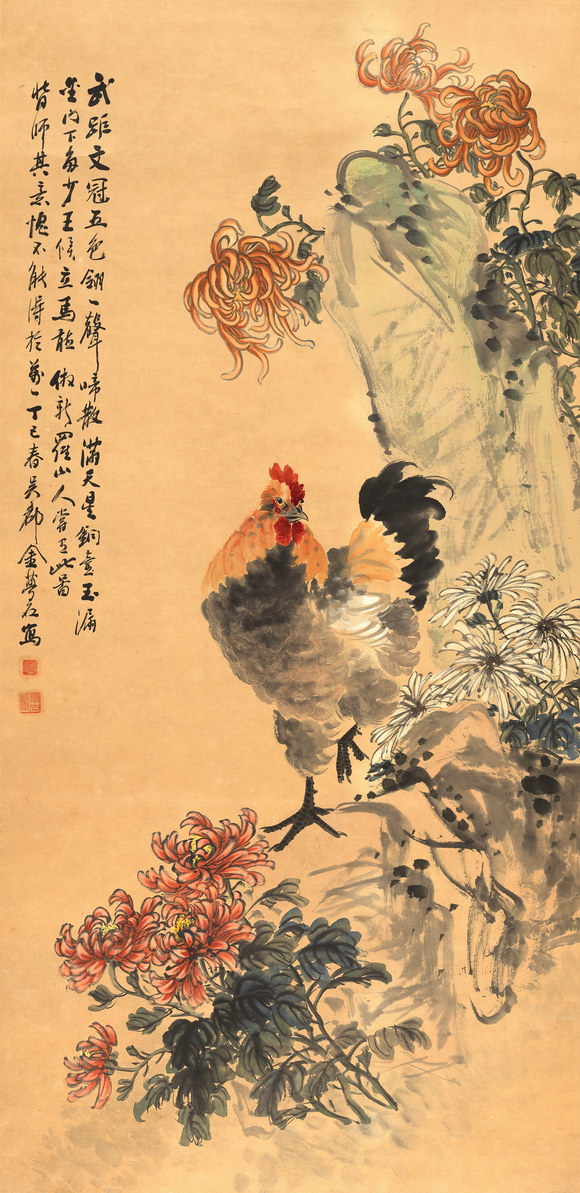 武距文冠五色翎一聲啼散滿天星銅壺玉漏
金內下多少王侯立馬聽 仿新羅山人嘗有此圖
皆師其意愧不能得於萬一丁巳春吳郡金夢石寫